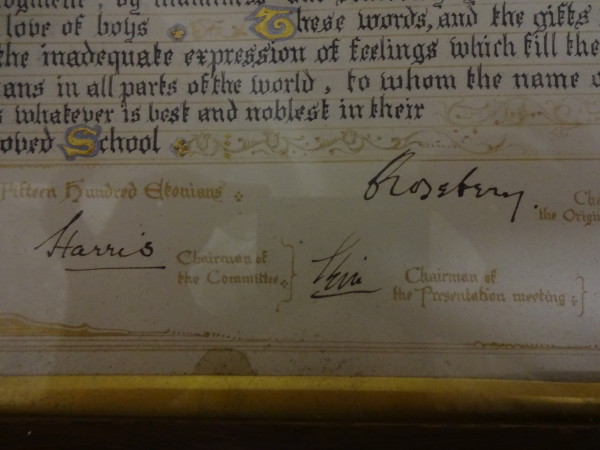 love of boys . These words, and the gifts
the inadequate expression of feelings which fill the
ans in all parts of the world, to whom the name
s whatever is best and noblest in their
oved School
Fifteen Hundred Etonians
Rosebery.
Cha
the Origin
Harris
Chairman of
the Committee
Chairman of
the Presentation meeting